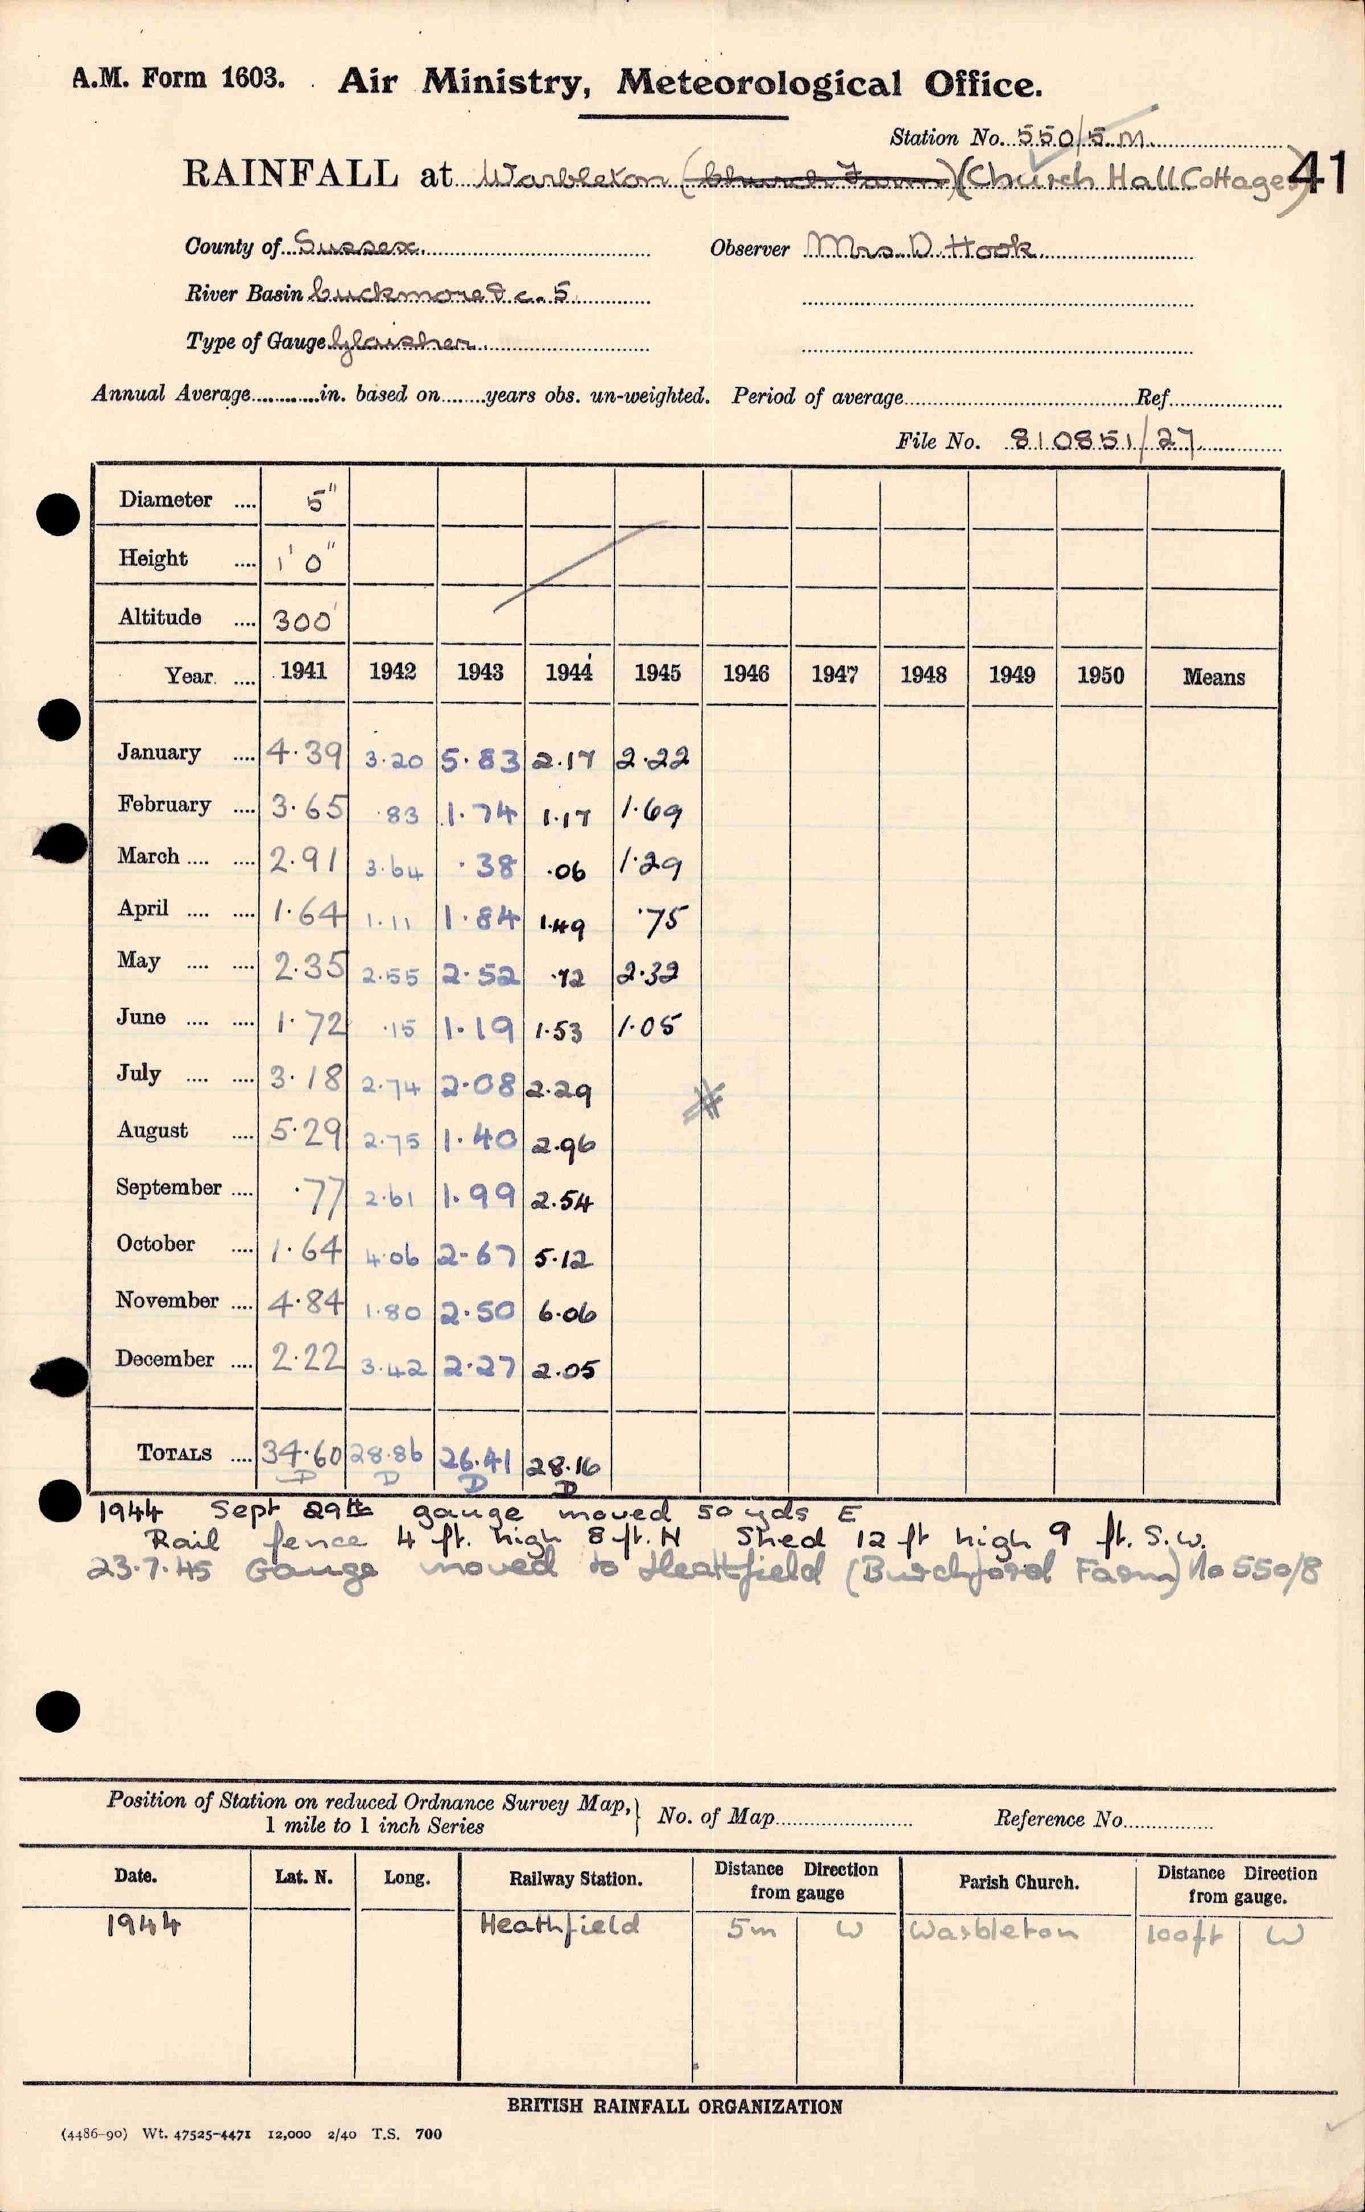 A.M. Form 1603. Air Ministry, Meteorological Office.
Station No. 550/5.M.
RAINFALL at Warbleton (Church Farm) (Church Hall Cottages) 41
County of Sussex. Observer Mrs. D. Hook.
River Basin Cuckmere &c. 5
Type of Gauge Glaisher.
Annual Average in. based on years obs. un-weighted. Period of average Ref.
File No. 810851/27
Diameter 5"
Height 1' 0"
Altitude 300'
Year 1941 1942 1943 1944 1945 1946 1947 1948 1949 1950 Means
January 4.39 3.20 5.83 2.17 2.22
February 3.65 .83 1.74 1.17 1.69
March 2.91 3.64 .38 .06 1.29
April 1.64 1.11 1.84 1.49 .75
May 2.35 2.55 2.52 .72 2.32
June 1.72 .15 1.19 1.53 1.05
July 3.18 2.74 2.08 2.29
August 5.29 2.75 1.40 2.96
September .77 2.61 1.99 2.54
October 1.64 4.06 2.67 5.12
November 4.84 1.80 2.50 6.06
December 2.22 3.42 2.27 2.05
TOTALS 34.60 28.86 26.41 28.16
D D D D
1944 Sept 29th gauge moved 50 yds E
Rail fence 4 ft. high 8 ft. N Shed 12 ft high 9 ft. S.W.
23.7.45 Gauge moved to Heathfield (Burchford Farm) No 550/8
Position of Station on reduced Ordnance Survey Map, 1 mile to 1 inch Series } No. of Map Reference No.
Date. Lat. N. Long. Railway Station. Distance Direction from gauge Parish Church. Distance Direction from gauge.
1944 Heathfield 5m W Warbleton 100ft W
BRITISH RAINFALL ORGANIZATION
(4486-90) Wt. 47525-4471 12,000 2/40 T.S. 700